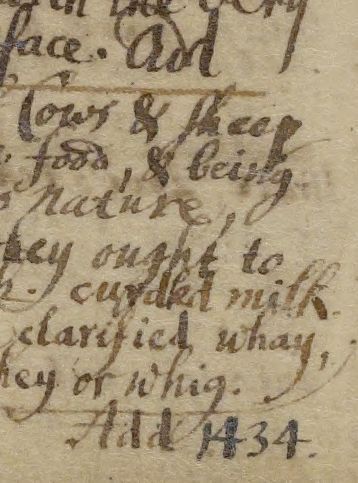 in the very
face. Add
Cows & sheep
food, & being
nature,
they ought to
h. curded milk.
clarified whay,
hey or whig.
Add 1434.